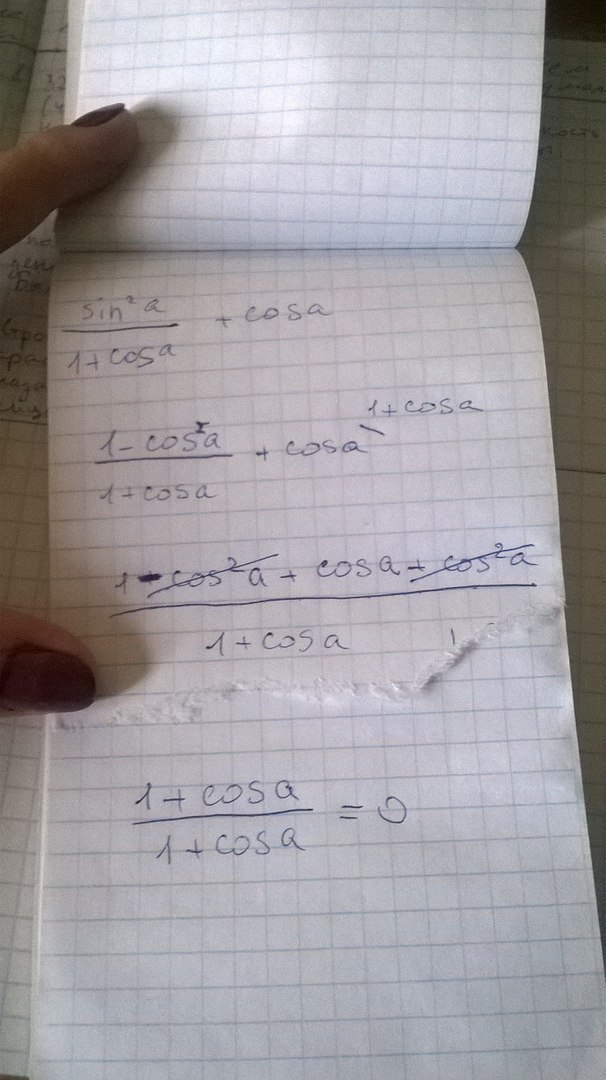 sin²a / 1+cosa + cosa
1-cos²a / 1+cosa + cosa \ 1+cosa
1-cos²a + cosa + cos²a / 1+cosa
1+cosa / 1+cosa = 0